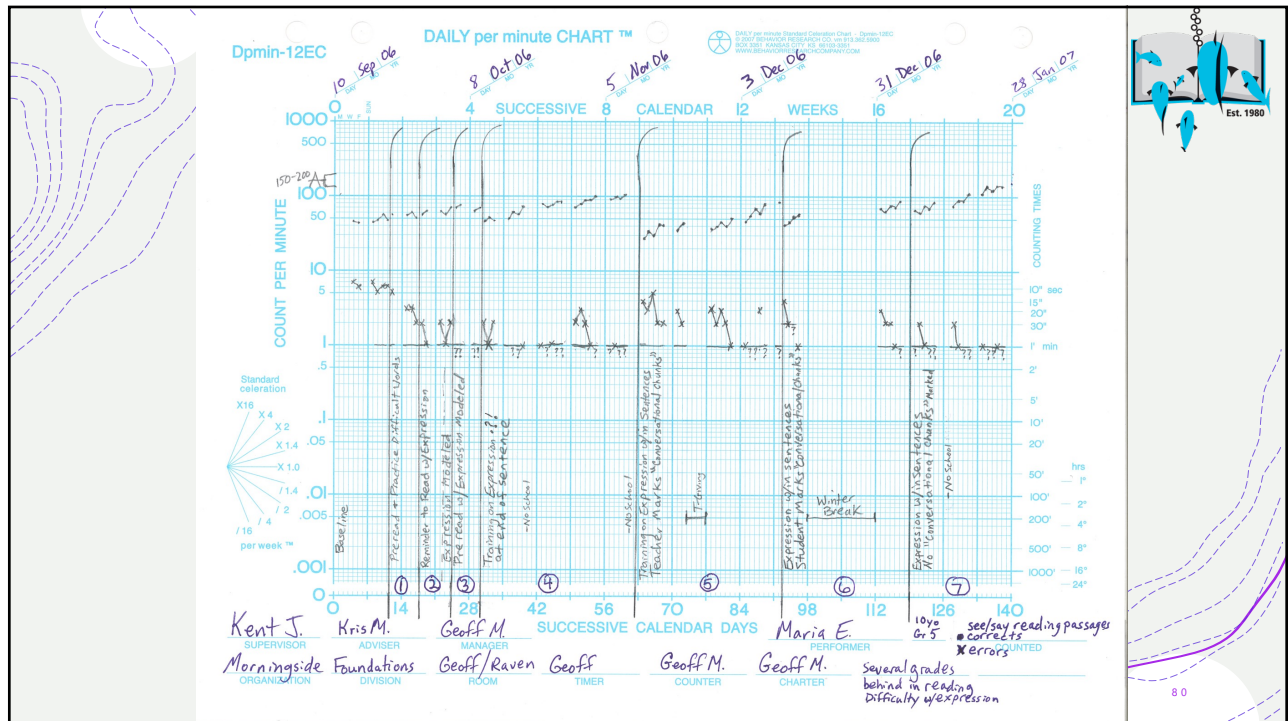 DAILY per minute CHART ™
Dpmin-12EC
DAILY per minute Standard Celeration Chart - Dpmin-12EC
© 2007 BEHAVIOR RESEARCH CO. vm 913.362.5900
BOX 3351 KANSAS CITY KS 66103-3351
WWW.BEHAVIORRESEARCHCOMPANY.COM
Est. 1980
10 Sep 06
8 Oct 06
5 Nov 06
3 Dec 06
31 Dec 06
28 Jan 07
DAY MO YR
DAY MO YR
DAY MO YR
DAY MO YR
DAY MO YR
DAY MO YR
0 4 SUCCESSIVE 8 CALENDAR 12 WEEKS 16 20
M W F SUN
COUNT PER MINUTE
1000
500
150-200
100
50
10
5
1
.5
.1
.05
.01
.005
.001
0
COUNTING TIMES
10" sec
15"
20"
30"
1' min
2'
5'
10'
20'
50'
100'
200'
500'
1000'
hrs
1°
2°
4°
8°
16°
24°
Standard
celeration
X16
X 4
X 2
X 1.4
X 1.0
/ 1.4
/ 2
/ 4
/ 16
per week ™
Baseline
Preread + Practice Difficult Words
Reminder to Read w/Expression
Expression Modeled
Preread w/Expression Modeled
Training on Expression .?!
at end of sentence
-No School
-No School
Training on Expression w/in Sentences
Teacher Marks "Conversational Chunks"
T-Giving
Expression w/in sentences
Student Marks "Conversational Chunks"
Winter
Break
Expression w/in Sentences
No "Conversational Chunks" Marked
-No School
1 2 3 4 5 6 7
0 14 28 42 56 70 84 98 112 126 140
SUCCESSIVE CALENDAR DAYS
Kent J.
SUPERVISOR
Kris M.
ADVISER
Geoff M.
MANAGER
Maria E.
PERFORMER
10yo
Gr 5
see/say reading passages
• corrects
x errors
COUNTED
Morningside
ORGANIZATION
Foundations
DIVISION
Geoff/Raven
ROOM
Geoff
TIMER
Geoff M.
COUNTER
Geoff M.
CHARTER
Several grades
behind in reading
Difficulty w/expression
80